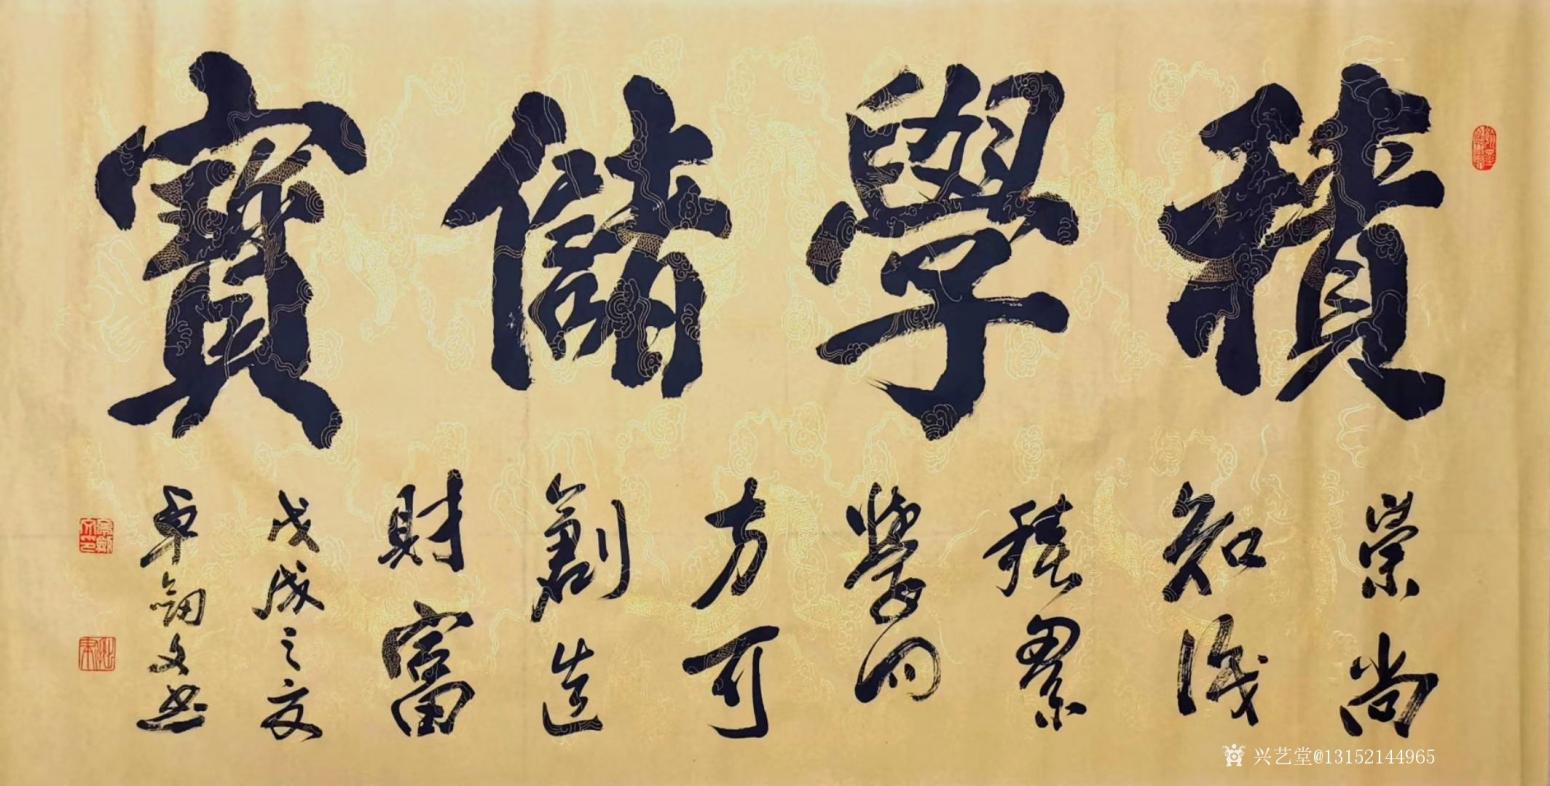 積學儲寶
崇尚
知識
積累
學問
方可
創造
財富
戊戌之夏
卓剑文书
兴艺堂@13152144965